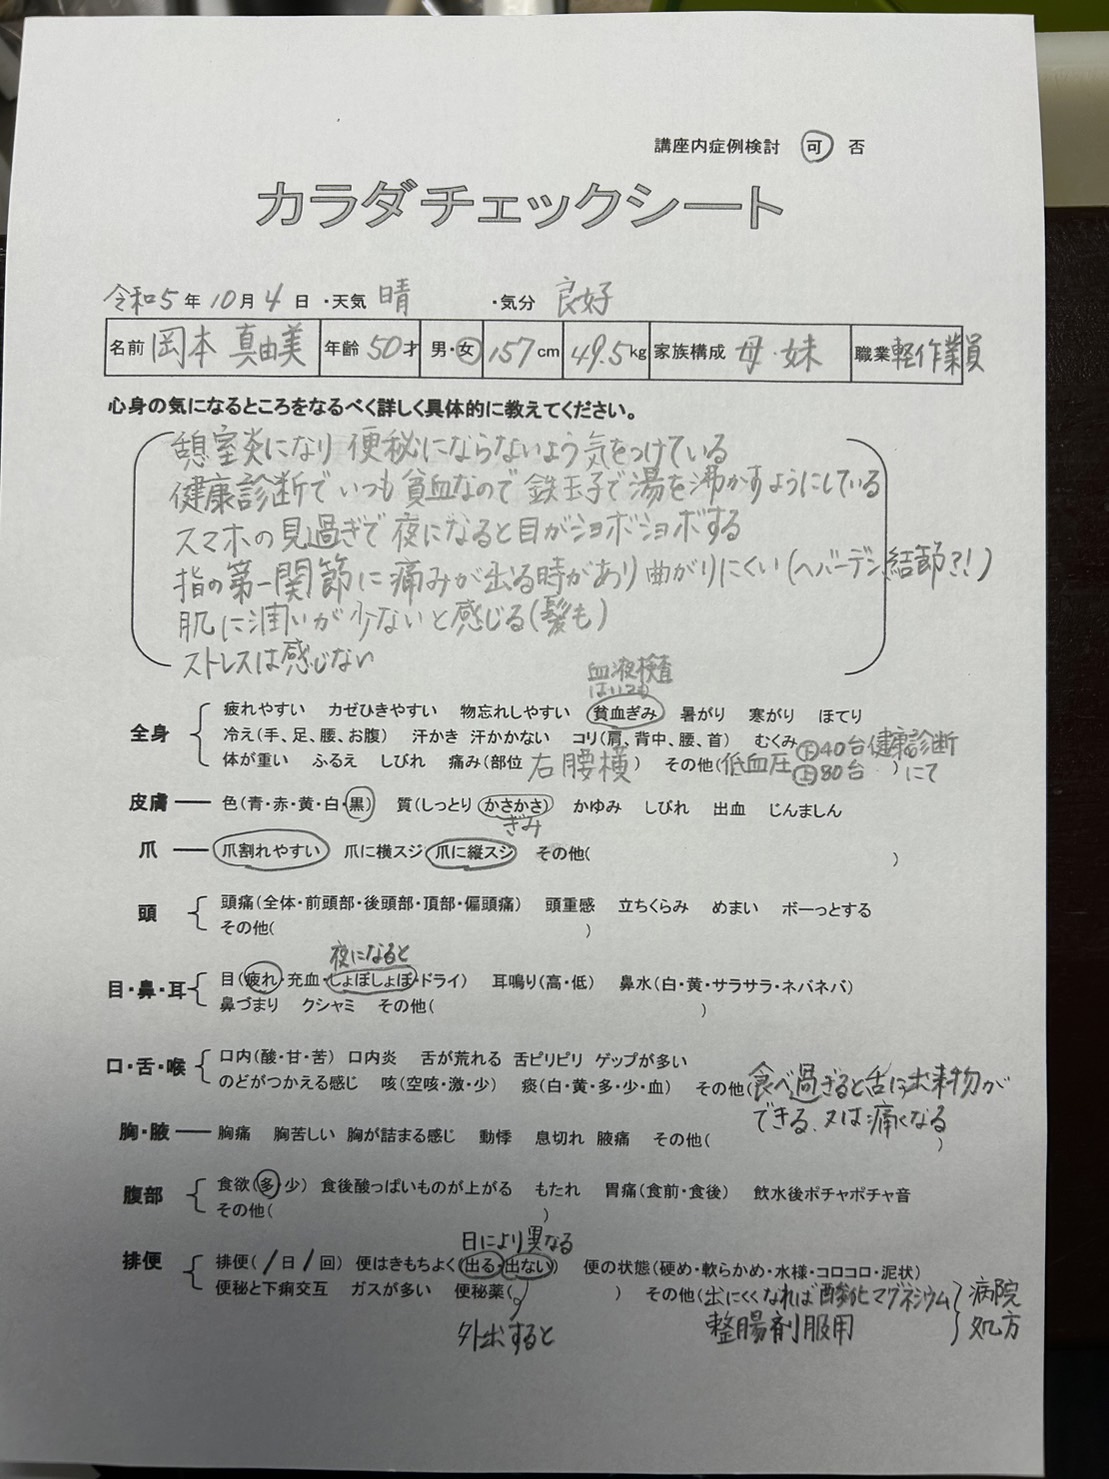 講座内症例検討 可 否
カラダチェックシート
令和5年10月4日 ・天気 晴 ・気分 良好
名前 岡本 真由美 年齢 50才 男・女 157cm 49.5kg 家族構成 母・妹 職業 軽作業員
心身の気になるところをなるべく詳しく具体的に教えてください。
憩室炎になり 便秘にならないよう気をつけている
健康診断でいつも貧血なので 鉄玉子で湯を沸かすようにしている
スマホの見過ぎで夜になると目がショボショボする
指の第一関節に痛みが出る時があり曲がりにくい(ヘバーデン結節?!)
肌に潤いが少ないと感じる(髪も)
ストレスは感じない
血液検査
はいつも
全身 疲れやすい カゼひきやすい 物忘れしやすい 貧血ぎみ 暑がり 寒がり ほてり
冷え(手、足、腰、お腹) 汗かき 汗かかない コリ(肩、背中、腰、首) むくみ
体が重い ふるえ しびれ 痛み(部位 右腰横) その他(低血圧 下40台 上80台 健康診断にて)
皮膚 色(青・赤・黄・白・黒) 質(しっとり かさかさ) かゆみ しびれ 出血 じんましん
ぎみ
爪 爪割れやすい 爪に横スジ 爪に縦スジ その他( )
頭 頭痛(全体・前頭部・後頭部・頂部・偏頭痛) 頭重感 立ちくらみ めまい ボーっとする
その他( )
夜になると
目・鼻・耳 目(疲れ・充血・しょぼしょぼ・ドライ) 耳鳴り(高・低) 鼻水(白・黄・サラサラ・ネバネバ)
鼻づまり クシャミ その他( )
口・舌・喉 口内(酸・甘・苦) 口内炎 舌が荒れる 舌ピリピリ ゲップが多い
のどがつかえる感じ 咳(空咳・激・少) 痰(白・黄・多・少・血) その他(食べ過ぎると舌に出来物が
できる、又は痛くなる )
胸・腋 胸痛 胸苦しい 胸が詰まる感じ 動悸 息切れ 腋痛 その他(
腹部 食欲(多・少) 食後酸っぱいものが上がる もたれ 胃痛(食前・食後) 飲水後ポチャポチャ音
その他( )
日により異なる
排便 排便(1日1回) 便はきもちよく(出る・出ない) 便の状態(硬め・軟らかめ・水様・コロコロ・泥状)
便秘と下痢交互 ガスが多い 便秘薬( ) その他(出にくくなれば酸化マグネシウム 病院
外出すると 整腸剤服用 処方